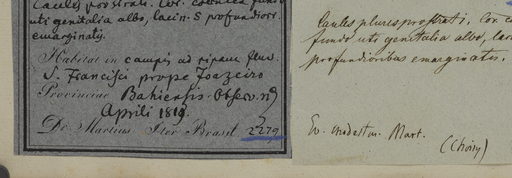 Caules prostrati. Cor. coerulea fundo
uti genitalia albo, lacin. 5 profundiori
emarginatis
Habitat in campis ad ripam fluv.
S. Francisci prope Joazeiro
Provinciae Bahiensis. Observ.
Aprili 1819.
Dr. Martius Iter Brasil 2279
Caules plures prostrati, Cor. c
fundo uti genitalia albo, lac
profundioribus emarginatis.
Ev. modestum Mart.
(Choisy)